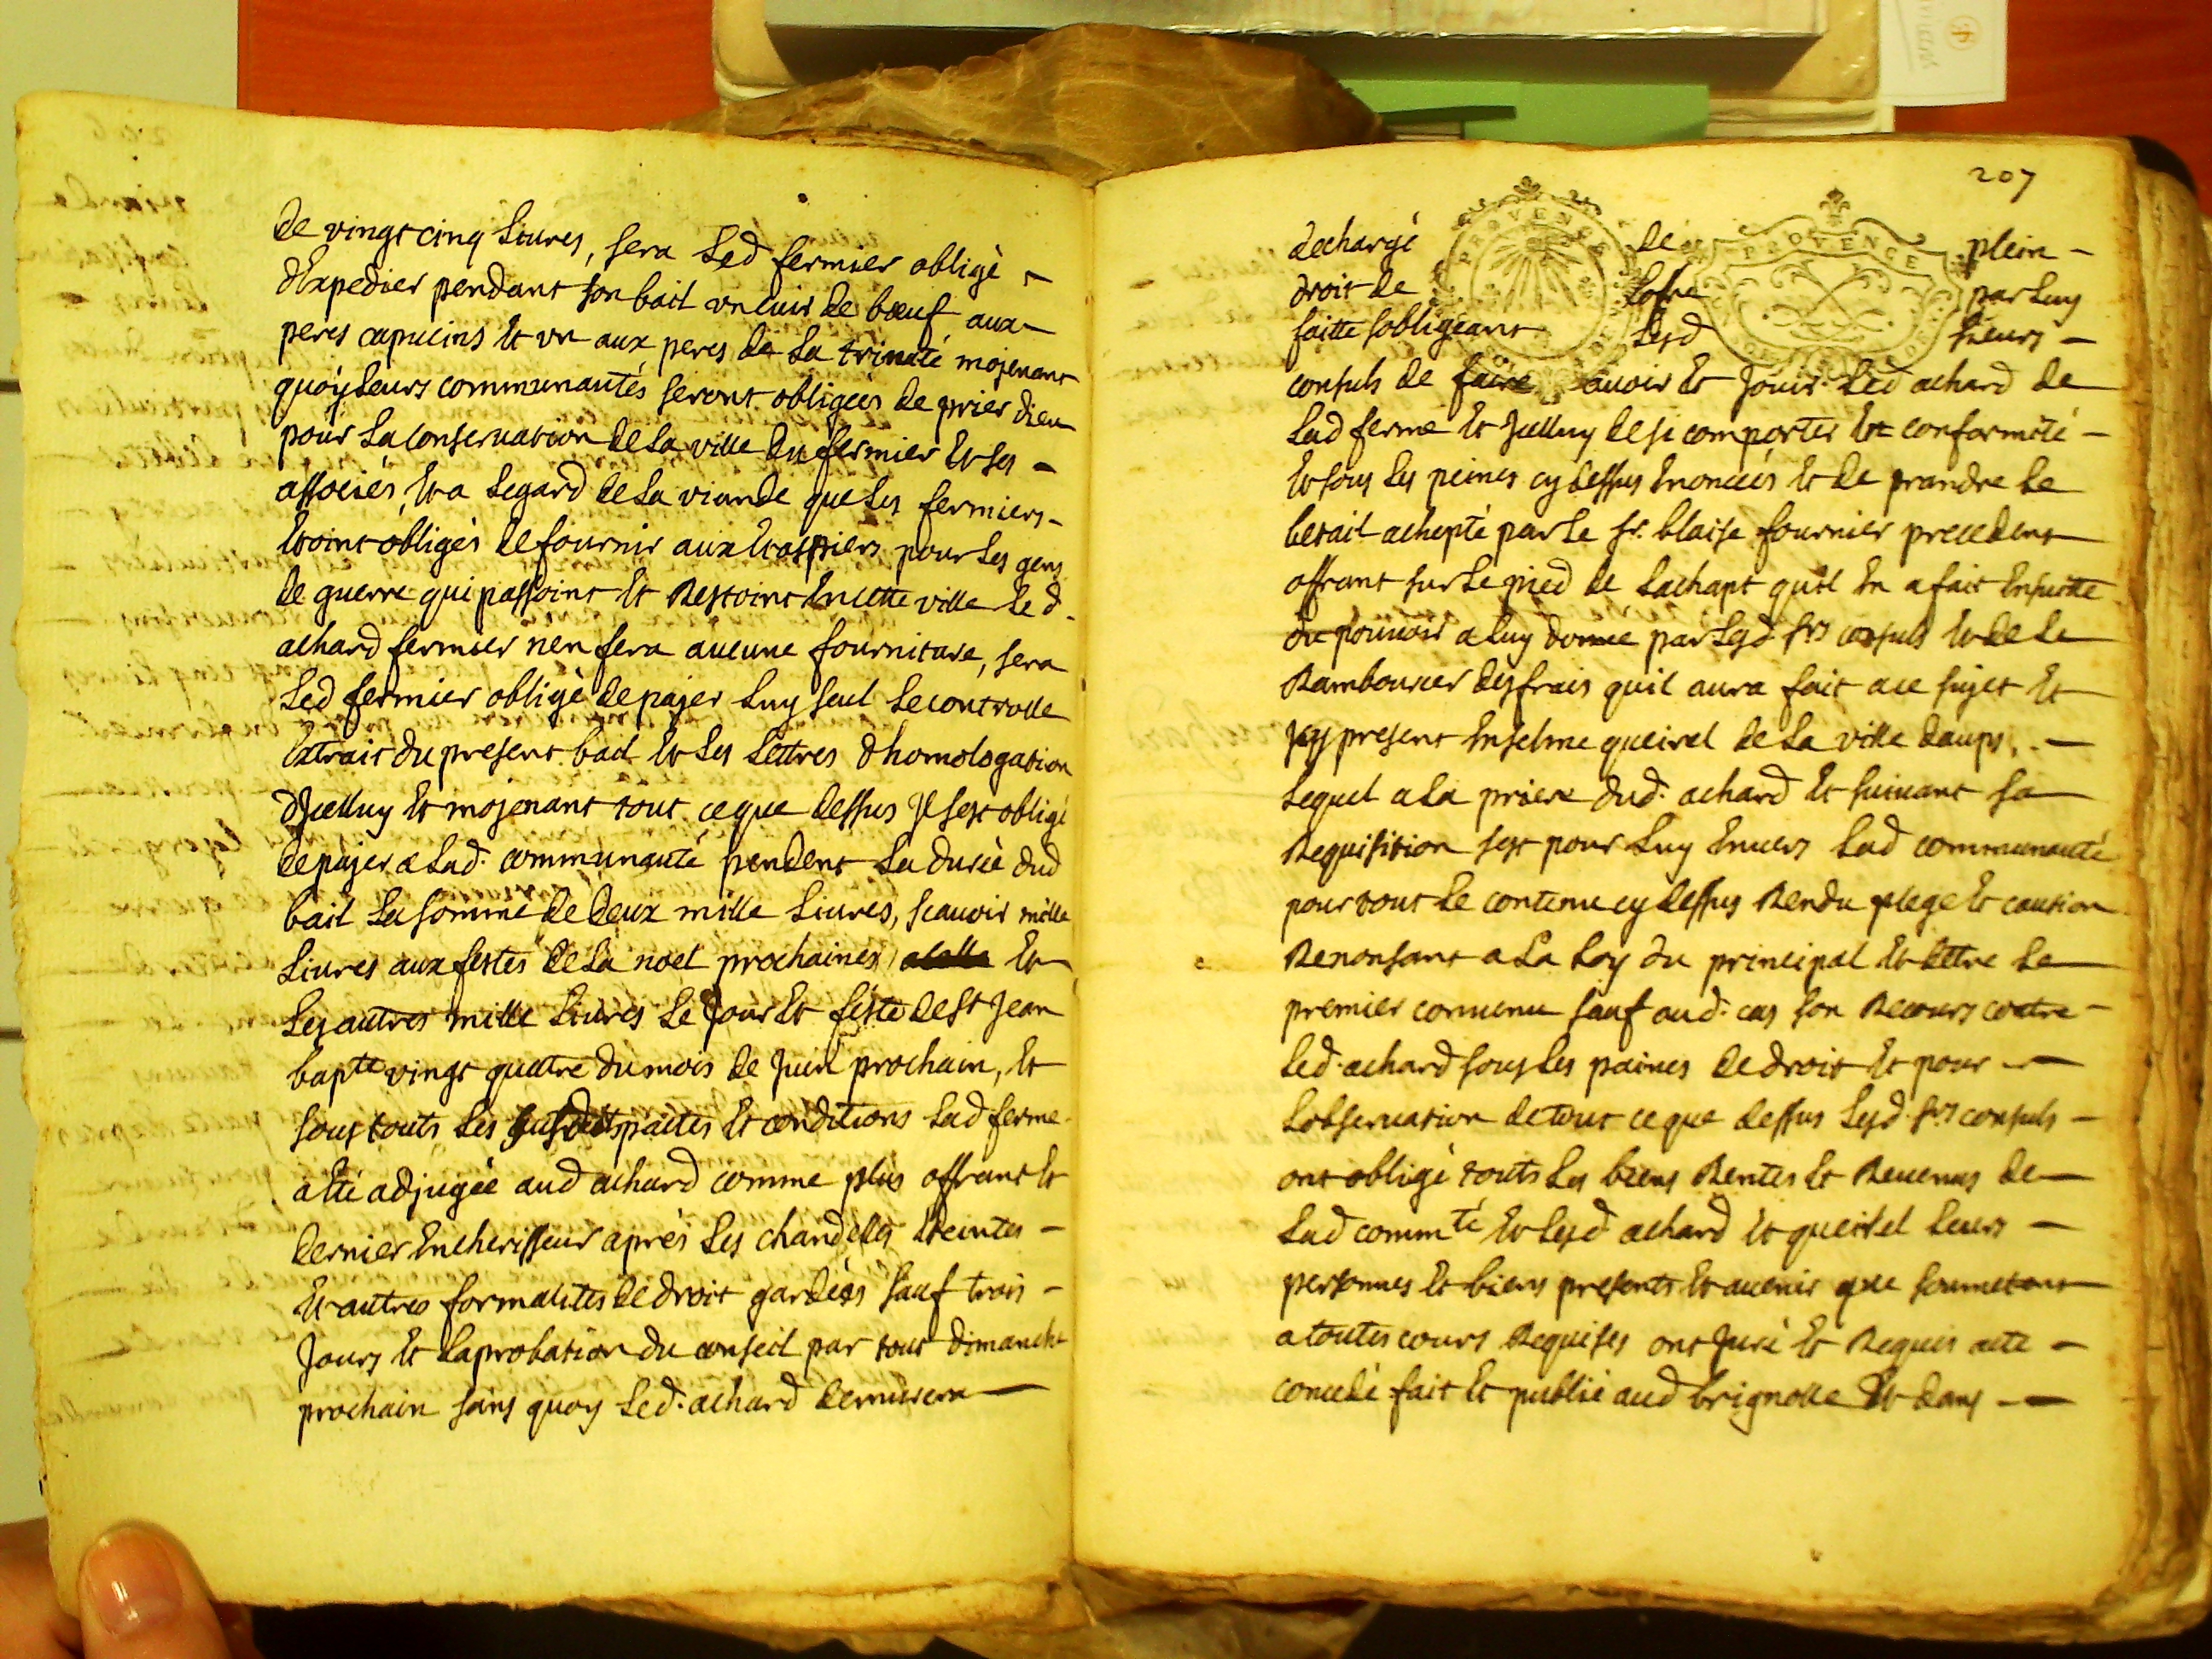 de vingt cinq livres, sera led fermier obligé
dExpedier pendant son bail un cuir de bœuf aux
peres capucins Et un aux peres de la trinité mojenant
quoy leurs communautés seront obligées de prier dieu
pour la conservation de la ville du fermier Et ses
associés, Et a legard de la viande que les fermiers
Etoint obligés de fournir aux Etappiers pour les gens
de guerre qui passoint Et Restoint En cette ville led.
achard fermier nen fera aucune fourniture, sera
led fermier obligé de pajer luy seul le controlle
Extrait du present bail Et les lettres dhomologation
dJcelluy Et mojenant tout ce que dessus Jl sest obligé
de pajer a lad. communauté pendent la durée dud
bail la somme de deux mille livres, scavoir mille
livres aux festes de la noel prochaines Et
les autres mille livres le Jour Et féste de st Jean
bapte vingt quattre du mois de Juin prochain, Et
sous touts les susdits pactes Et conditions lad ferme
a Eté adjugée aud achard comme plus offrant Et
dernier Encherisseur aprés les chandelles Eteintes
Et autres formalités de droit gardées sauf trois
Jours Et laprobation du conseil par tout dimanche
prochain sans quoy led. achard demurera
207
PROVENCE
PROVENCE
dechargé de plein
droit de lofre par luy
faitte sobligeant lesd sieurs
consuls de faire avoir Et Jouir led achard de
lad ferme Et Jcelluy de si comporter En conformité
Et sous les peines cy dessus Enoncées Et de prandre le
betail achepté par le sr. blaise fournier precedent
offrant sur le pied de lachapt quil En a fait Ensuitte
du pouvoir a luy donné par lesd. srs consuls Et de le
Rambourcer des frais quil aura fait a ce sujet Et
Jcy present Enselme queirel de la ville daups,
lequel a la priere dud. achard Et suivant sa
Requisition sest pour luy Envers lad communauté
pour tout le contenu cy dessus Rendu plege Et caution
Renonsant a la loy du principal Et dettre le
premier convenu sauf aud. cas son Recours contre
led. achard sous les paines de droit Et pour
lobservation de tout ce que dessus lesd. srs consuls
ont obligé touts les biens Rentes Et Revenus de
lad commté Et lesd achard Et queirel leurs
personnes Et biens presents Et avenir que soumetent
a toutes cours Requises ont Juré Et Requis acte
concedé fait Et publié aud brignolle Et dans